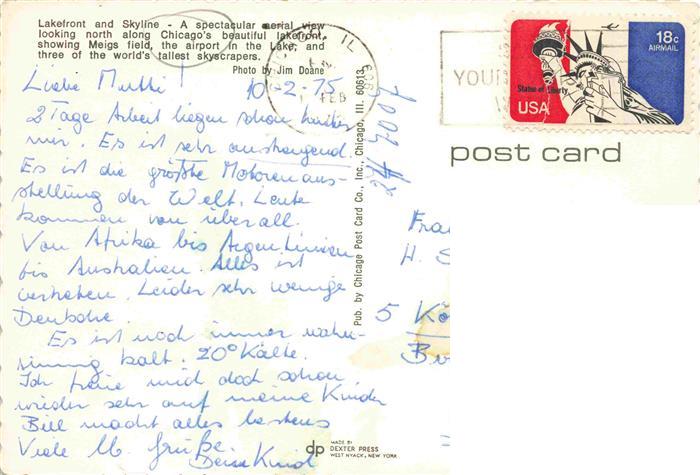 Lakefront and Skyline - A spectacular aerial view
looking north along Chicago's beautiful lakefront,
showing Meigs field, the airport in the Lake, and
three of the world's tallest skyscrapers.
Photo by Jim Doane
Liebe Mutti!
10-2-75
2 Tage Arbeit liegen schon hinter
mir. Es ist sehr anstrengend.
Es ist die größte Motorenaus-
stellung der Welt. Leute
kommen von überall.
Von Afrika bis Argentinien
bis Australien. Alles ist
vertreten. Leider sehr wenige
Deutsche.
Es ist noch immer wahn-
sinnig kalt. 20° Kälte.
Ich freue mich doch schon
wieder sehr auf meine Kinder
Bill macht alles bestens
Viele lb. Grüße.
Dein Kind
Pub. by Chicago Post Card Co., Inc., Chicago, Ill. 60613
dp
MADE BY
DEXTER PRESS
WEST NYACK, NEW YORK
IL
606
FEB
YOUR
18c
AIRMAIL
Statue of Liberty
USA
post card
Fra
H. S
5 Kö